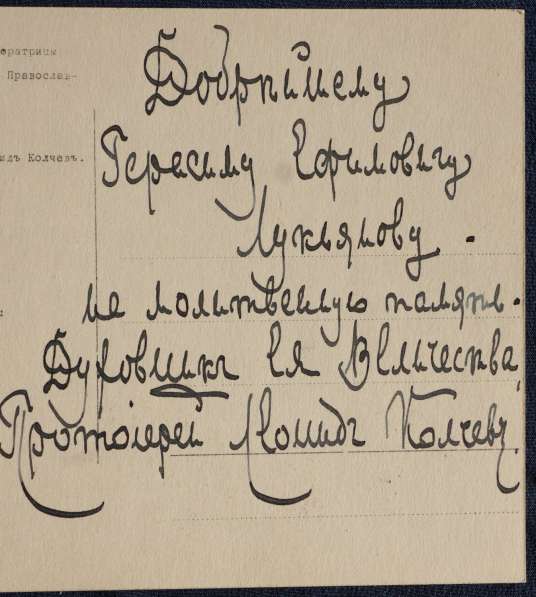 ератрицы
Православ-
идъ Колчевъ.
Добрѣйшему
Герасиму Ефимовичу
Лукьянову.
на молитвенную память.
Духовникъ Ея Величества,
Протоіерей Леонидъ Колчевъ.